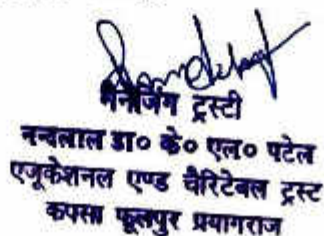 मैनेजिंग ट्रस्टी
नन्दलाल डा० के० एल० पटेल
एजूकेशनल एण्ड चैरिटेबल ट्रस्ट
कपसा फूलपुर प्रयागराज